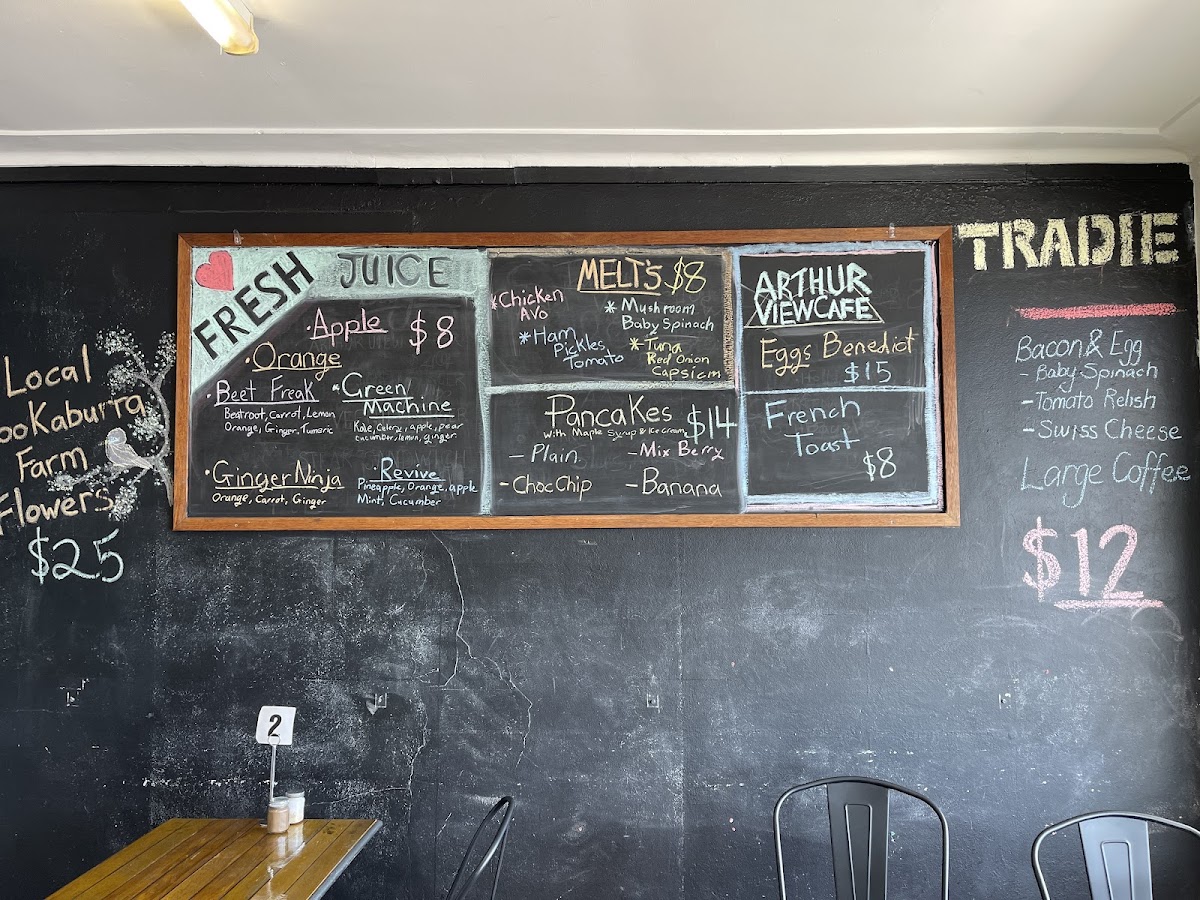 Local
ooKaburra
Farm
Flowers
$25
FRESH JUICE
• Apple $8
• Orange
• Beet Freak
Beatroot, Carrot, Lemon
Orange, Ginger, Tumeric
• Green
Machine
Kale, Celery, apple, pear
cucumber, lemon, ginger
• Ginger Ninja
Orange, Carrot, Ginger
• Revive
Pineapple, Orange, apple
Mint, Cucumber
MELT's $8
* Chicken
Avo
* Ham
Pickles
Tomato
* Mushroom
Baby Spinach
* Tuna
Red Onion
Capsicm
Pancakes $14
with Maple Syrup & Ice cream
- Plain
- Mix Berry
- Choc Chip
- Banana
ARTHUR
VIEWCAFE
Eggs Benedict
$15
French
Toast
$8
TRADIE
Bacon & Egg
- Baby Spinach
- Tomato Relish
- Swiss Cheese
Large Coffee
$12
2